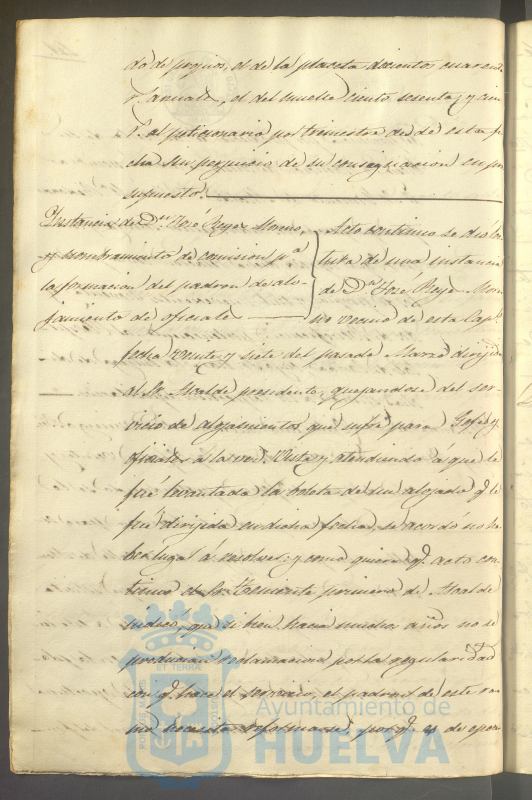 do de propios, el de la placeta docientos cuarenta
r.^s anuales, el del muelle ciento sesenta y cin
r.^s al peticionario por trimestre desde esta fe
cha sin perjuicio de su consignacion en pre
supuesto.
Instancia de D.^n José Reyes Moreno,
y nombramiento de comision p.^a
la formacion del padron de alo-
jamiento de oficiales
Acto continuo se dió lec
tura de una instancia
de D.^n José Reyes More
no vecino de esta Cap.^l
fecha veinte y siete del pasado Marzo dirijida
al Sr. Alcalde presidente, quejandose del ser-
vicio de alojamientos que sufre para Gefes y
oficiales a la vez. Vista y atendiendo á que le
fué levantada la boleta de un alojado q.^e le
fué dirijida en dicha fecha, se acordó no ha
ber lugar á resolver; y como quiera q.^e acto con
tinuo el Sr. Teniente primero de Alcalde
indicó, que si bien hacia muchos años no se
producian reclamaciones por la regularidad
con q.^e hace el servicio, el padron de este ra
mo necesita reformarse, por q.^e es de epoca
PORTUS MARIS
ET TERRAE
CUSTODIA
Ayuntamiento de
HUELVA